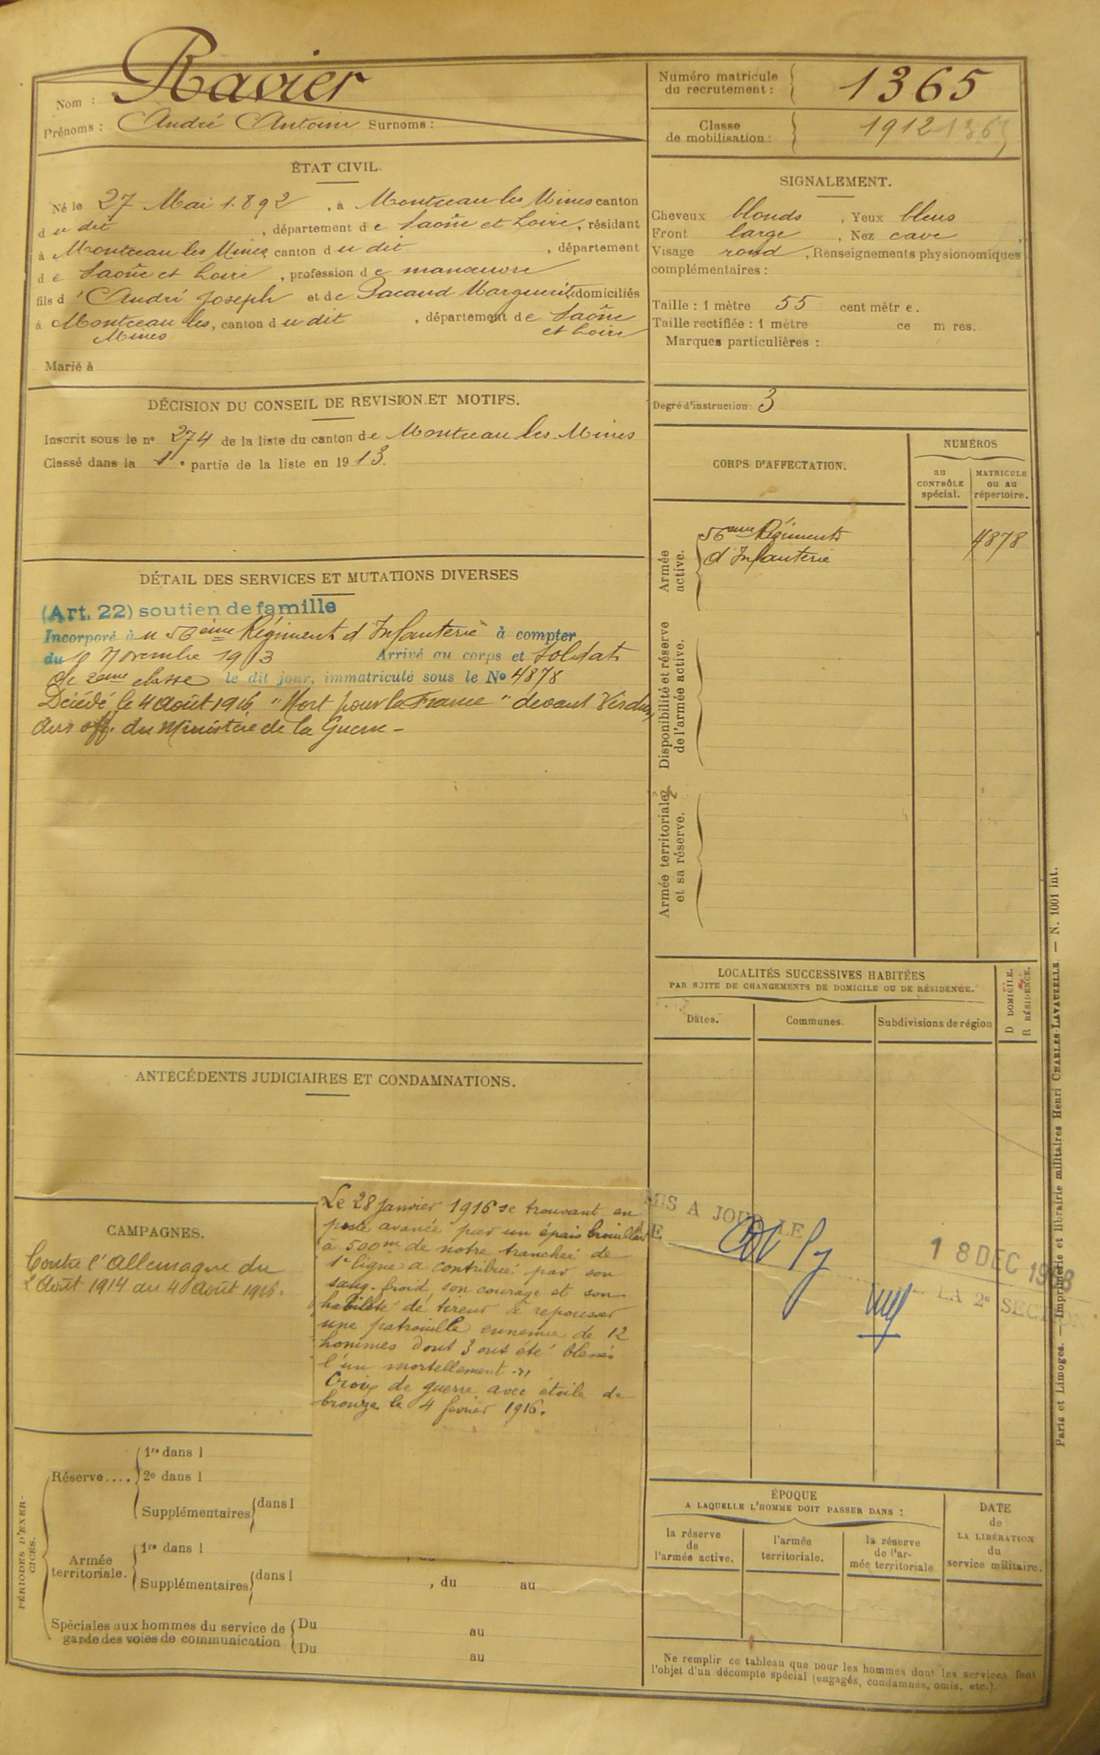 Nom : Ravier
Prénoms : André Antoine Surnoms :
Numéro matricule du recrutement : 1365
Classe de mobilisation : 1912
ÉTAT CIVIL.
Né le 27 Mai 1892, à Montceau les Mines canton
du dit, département de Saône et Loire, résidant
à Montceau les Mines canton du dit, département
de Saône et Loire, profession de manœuvre
fils d'André Joseph et de Pacaud Marguerite domiciliés
à Montceau les Mines, canton du dit, département de Saône et Loire
Marié à
SIGNALEMENT.
Cheveux blonds, Yeux bleus
Front large, Nez cave,
Visage rond, Renseignements physionomiques
complémentaires :
Taille : 1 mètre 55 centimètre.
Taille rectifiée : 1 mètre ce m res.
Marques particulières :
Degré d'instruction : 3
DÉCISION DU CONSEIL DE REVISION ET MOTIFS.
Inscrit sous le n° 274 de la liste du canton de Montceau les Mines
Classé dans la 1e partie de la liste en 1913.
CORPS D'AFFECTATION.
NUMÉROS
AU CONTRÔLE spécial.
MATRICULE OU AU répertoire.
Armée active.
56eme Régiment
d'Infanterie
4878
Disponibilité et réserve de l'armée active.
Armée territoriale et sa réserve.
DÉTAIL DES SERVICES ET MUTATIONS DIVERSES
(Art. 22) soutien de famille
Incorporé au 56ème Régiment d'Infanterie à compter
du Novembre 1913 Arrivé au corps et Soldat
de 2eme classe le dit jour, immatriculé sous le No 4878
Décédé le 4 août 1916 "Mort pour la France" devant Verdun
avis off. du Ministère de la Guerre -
LOCALITÉS SUCCESSIVES HABITÉES
PAR SUITE DE CHANGEMENTS DE DOMICILE OU DE RÉSIDENCE.
Dates.
Communes.
Subdivisions de région
D DOMICILE.
R RÉSIDENCE.
ANTÉCÉDENTS JUDICIAIRES ET CONDAMNATIONS.
CAMPAGNES.
Contre l'Allemagne du
2 Août 1914 au 4 Août 1916.
Le 28 Janvier 1916 se trouvant en
poste avancé par un épais brouillard
à 500m de notre tranchée de
1e ligne a contribué par son
sang-froid, son courage et son
habileté de tireur à repousser
une patrouille ennemie de 12
hommes dont 3 ont été blessés
l'un mortellement »
Croix de guerre avec étoile de
bronze le 4 février 1916.
MIS A JOUR LE
18 DEC 19
LA 2e SECTION
PÉRIODES D'EXERCICES.
Réserve....
1re dans l
2e dans l
Supplémentaires dans l
Armée territoriale.
1re dans l
Supplémentaires dans l , du au
Spéciales aux hommes du service de garde des voies de communication
Du au
Du au
ÉPOQUE
A LAQUELLE L'HOMME DOIT PASSER DANS :
la réserve de l'armée active.
l'armée territoriale.
la réserve de l'armée territoriale
DATE de LA LIBÉRATION du service militaire.
Ne remplir ce tableau que pour les hommes dont les services font
l'objet d'un décompte spécial (engagés, condamnés, omis, etc.).
Paris et Limoges. — Imprimerie et librairie militaires Henri CHARLES-LAVAUZELLE — N. 1001 int.